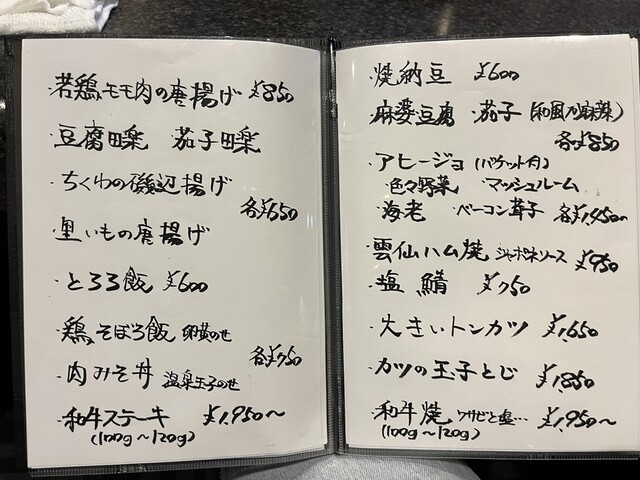 ・若鶏モモ肉の唐揚げ ¥850
・豆腐田楽 茄子田楽
・ちくわの磯辺揚げ
各¥650
・里いもの唐揚げ
・とろろ飯 ¥600
・鶏そぼろ飯 卵黄のせ
各¥750
・肉みそ丼 温泉玉子のせ
・和牛ステーキ ¥1,950〜
(100g〜120g)
・焼納豆 ¥600
・麻婆豆腐 ・茄子 (和風ピリ麻辣)
各¥850
・アヒージョ (バケット付)
・色々野菜 ・マッシュルーム
・海老 ・ベーコン茸子 各¥1,450〜
・雲仙ハム焼 シャポネソース ¥950
・塩鯖 ¥750
・大きいトンカツ ¥1,650
・カツの玉子とじ ¥1,850
・和牛焼 ワサビと塩… ¥1,950〜
(100g〜120g)